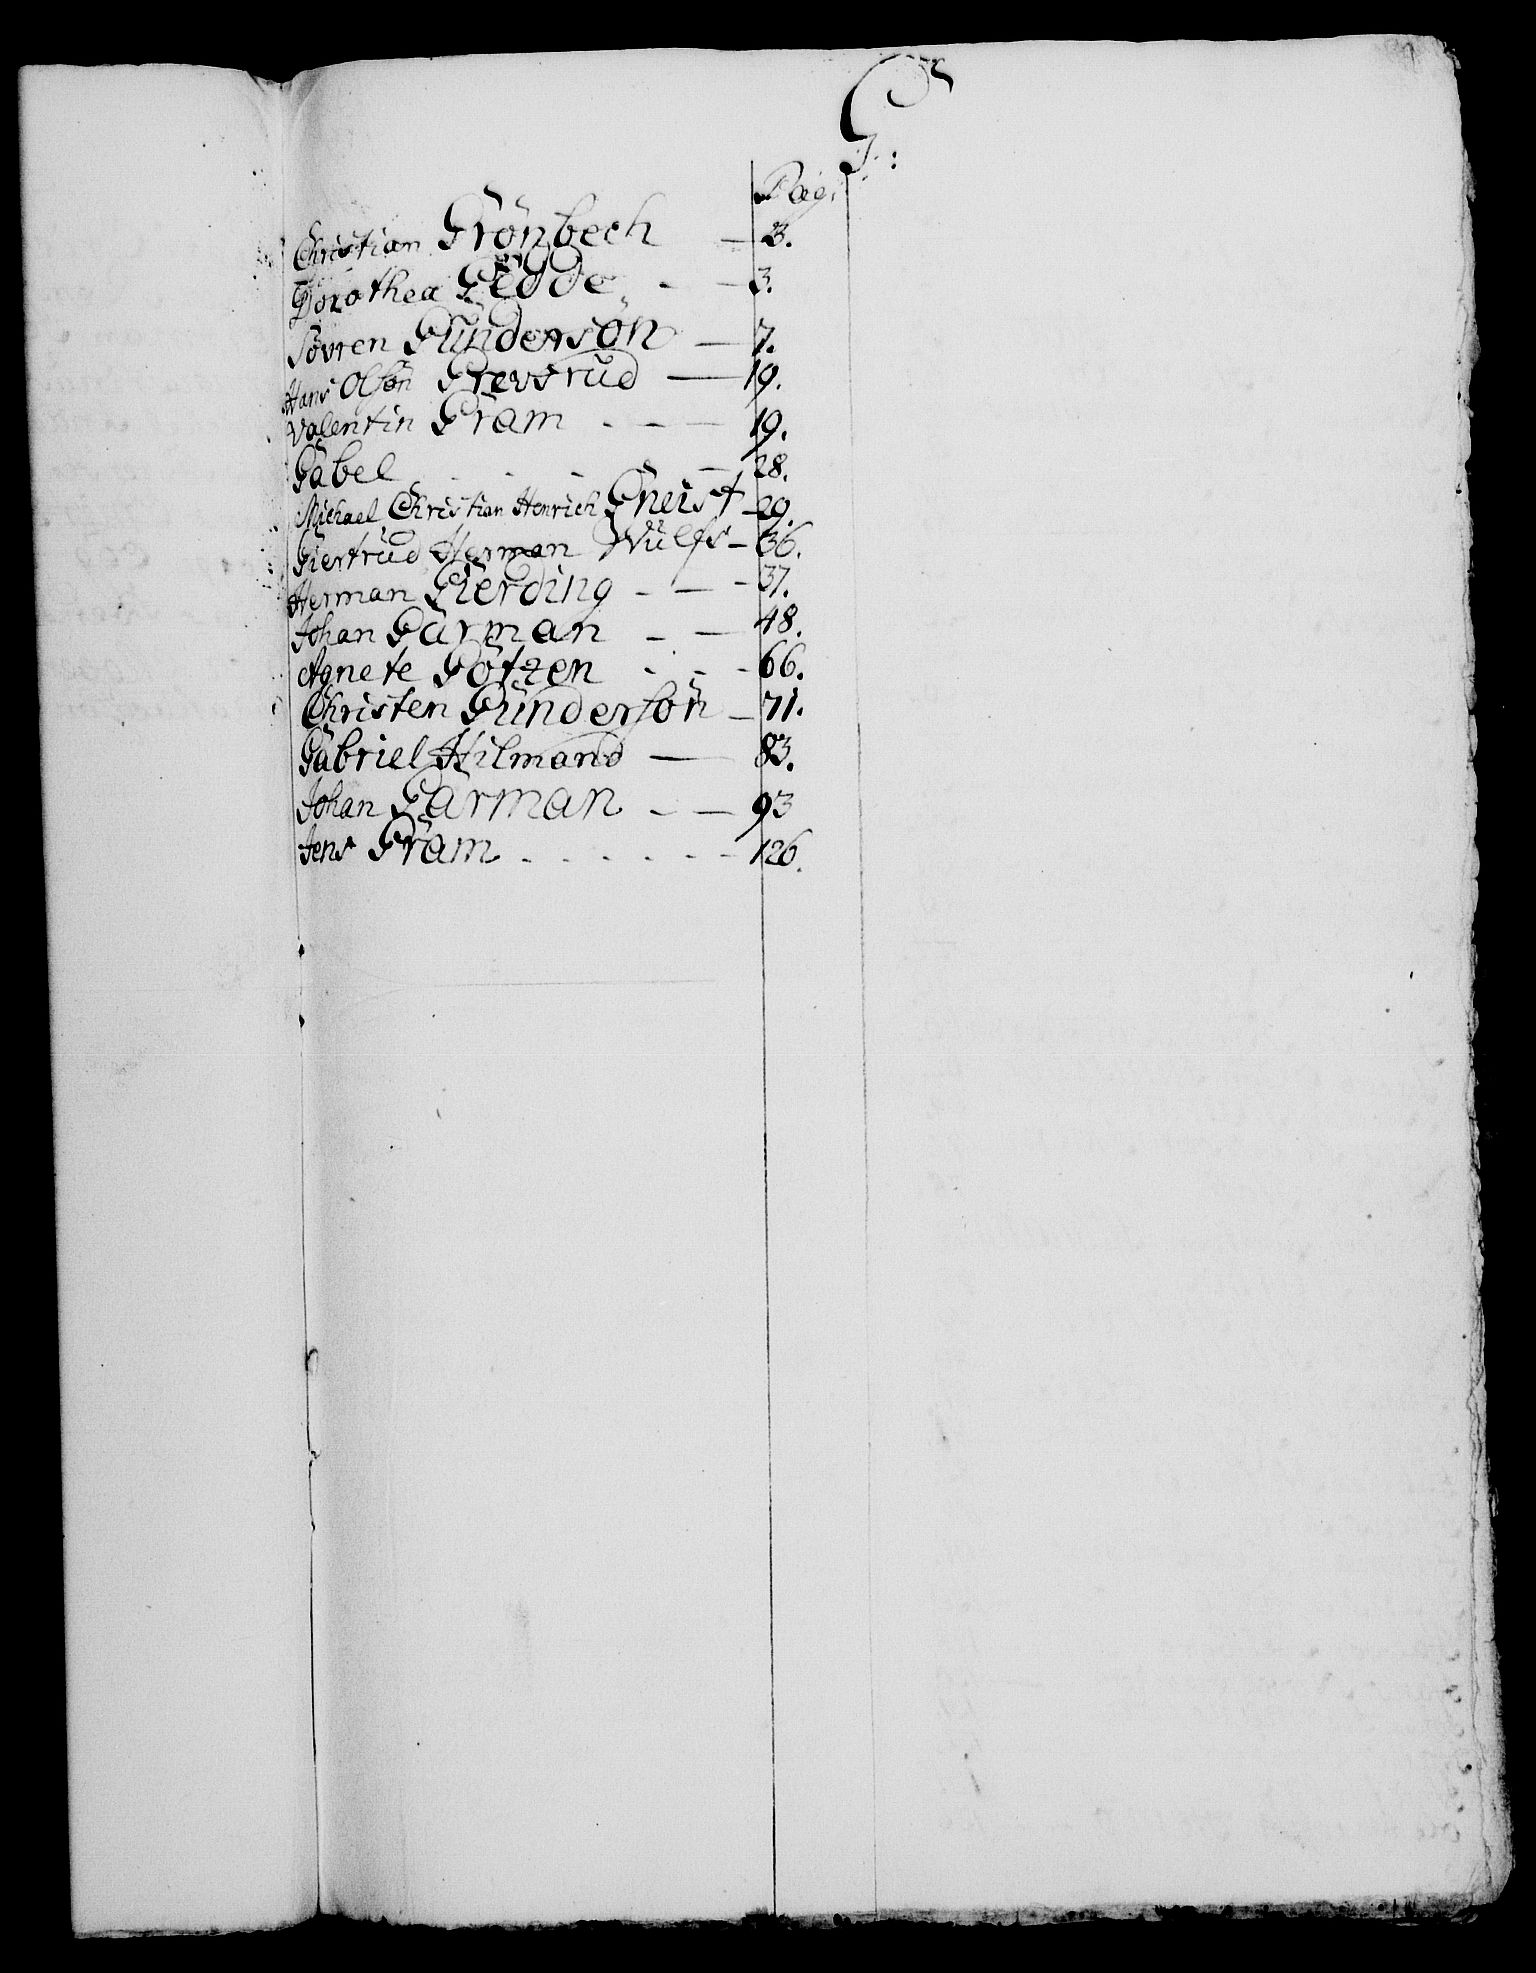 G:
Pag:
Christian Grönbech — 3.
Dorothea Gedde - — 3.
Søvren Gündersön — 7.
Hans Olsön Grevsrud — 19.
Valentin Gram - - — 19.
Gabel - - - — 28.
Michael Christian Henrich Gneist — 29.
Giertrud Herman Wülfs — 36.
Herman Gierding - — - 37.
Johan Garman - — 48.
Agnete Götzen - - - 66.
Christen Gündersön — 71.
Gabriel Hilmand — 83.
Johan Garman - — 93
Jens Gram - - - - - - 126.